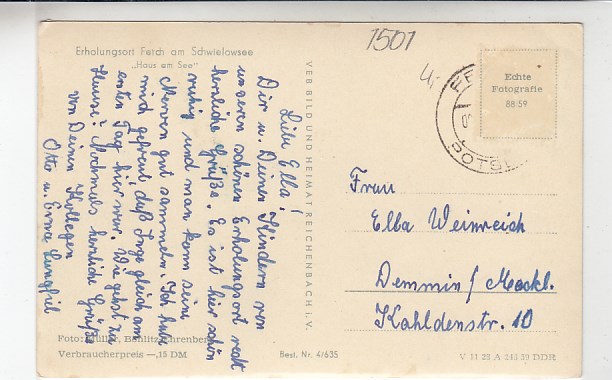 1501
Erholungsort Ferch am Schwielowsee
„Haus am See“
Liebe Ella!
Dir u. Deinen Kindern von
unserem schönen Erholungsort recht
herzliche Grüße. Es ist hier schön
ruhig und man kann seine
Nerven gut sammeln. Ich habe
mich gefreut, daß Inge gleich am
ersten Tag hier war. Wie gehst zu
Hause? Nochmals herzliche Grüße
von Deinen Kollegen
Otto u. Erna
VEB BILD UND HEIMAT REICHENBACH I. V.
Echte
Fotografie
88 59
POTSD
Frau
Ella Weinreich
Demmin/Meckl.
Kahldenstr. 10
Foto: Müller, Böhlitz-Ehrenberg
Verbraucherpreis —,15 DM
Best. Nr. 4/635
V 11 28 A DDR